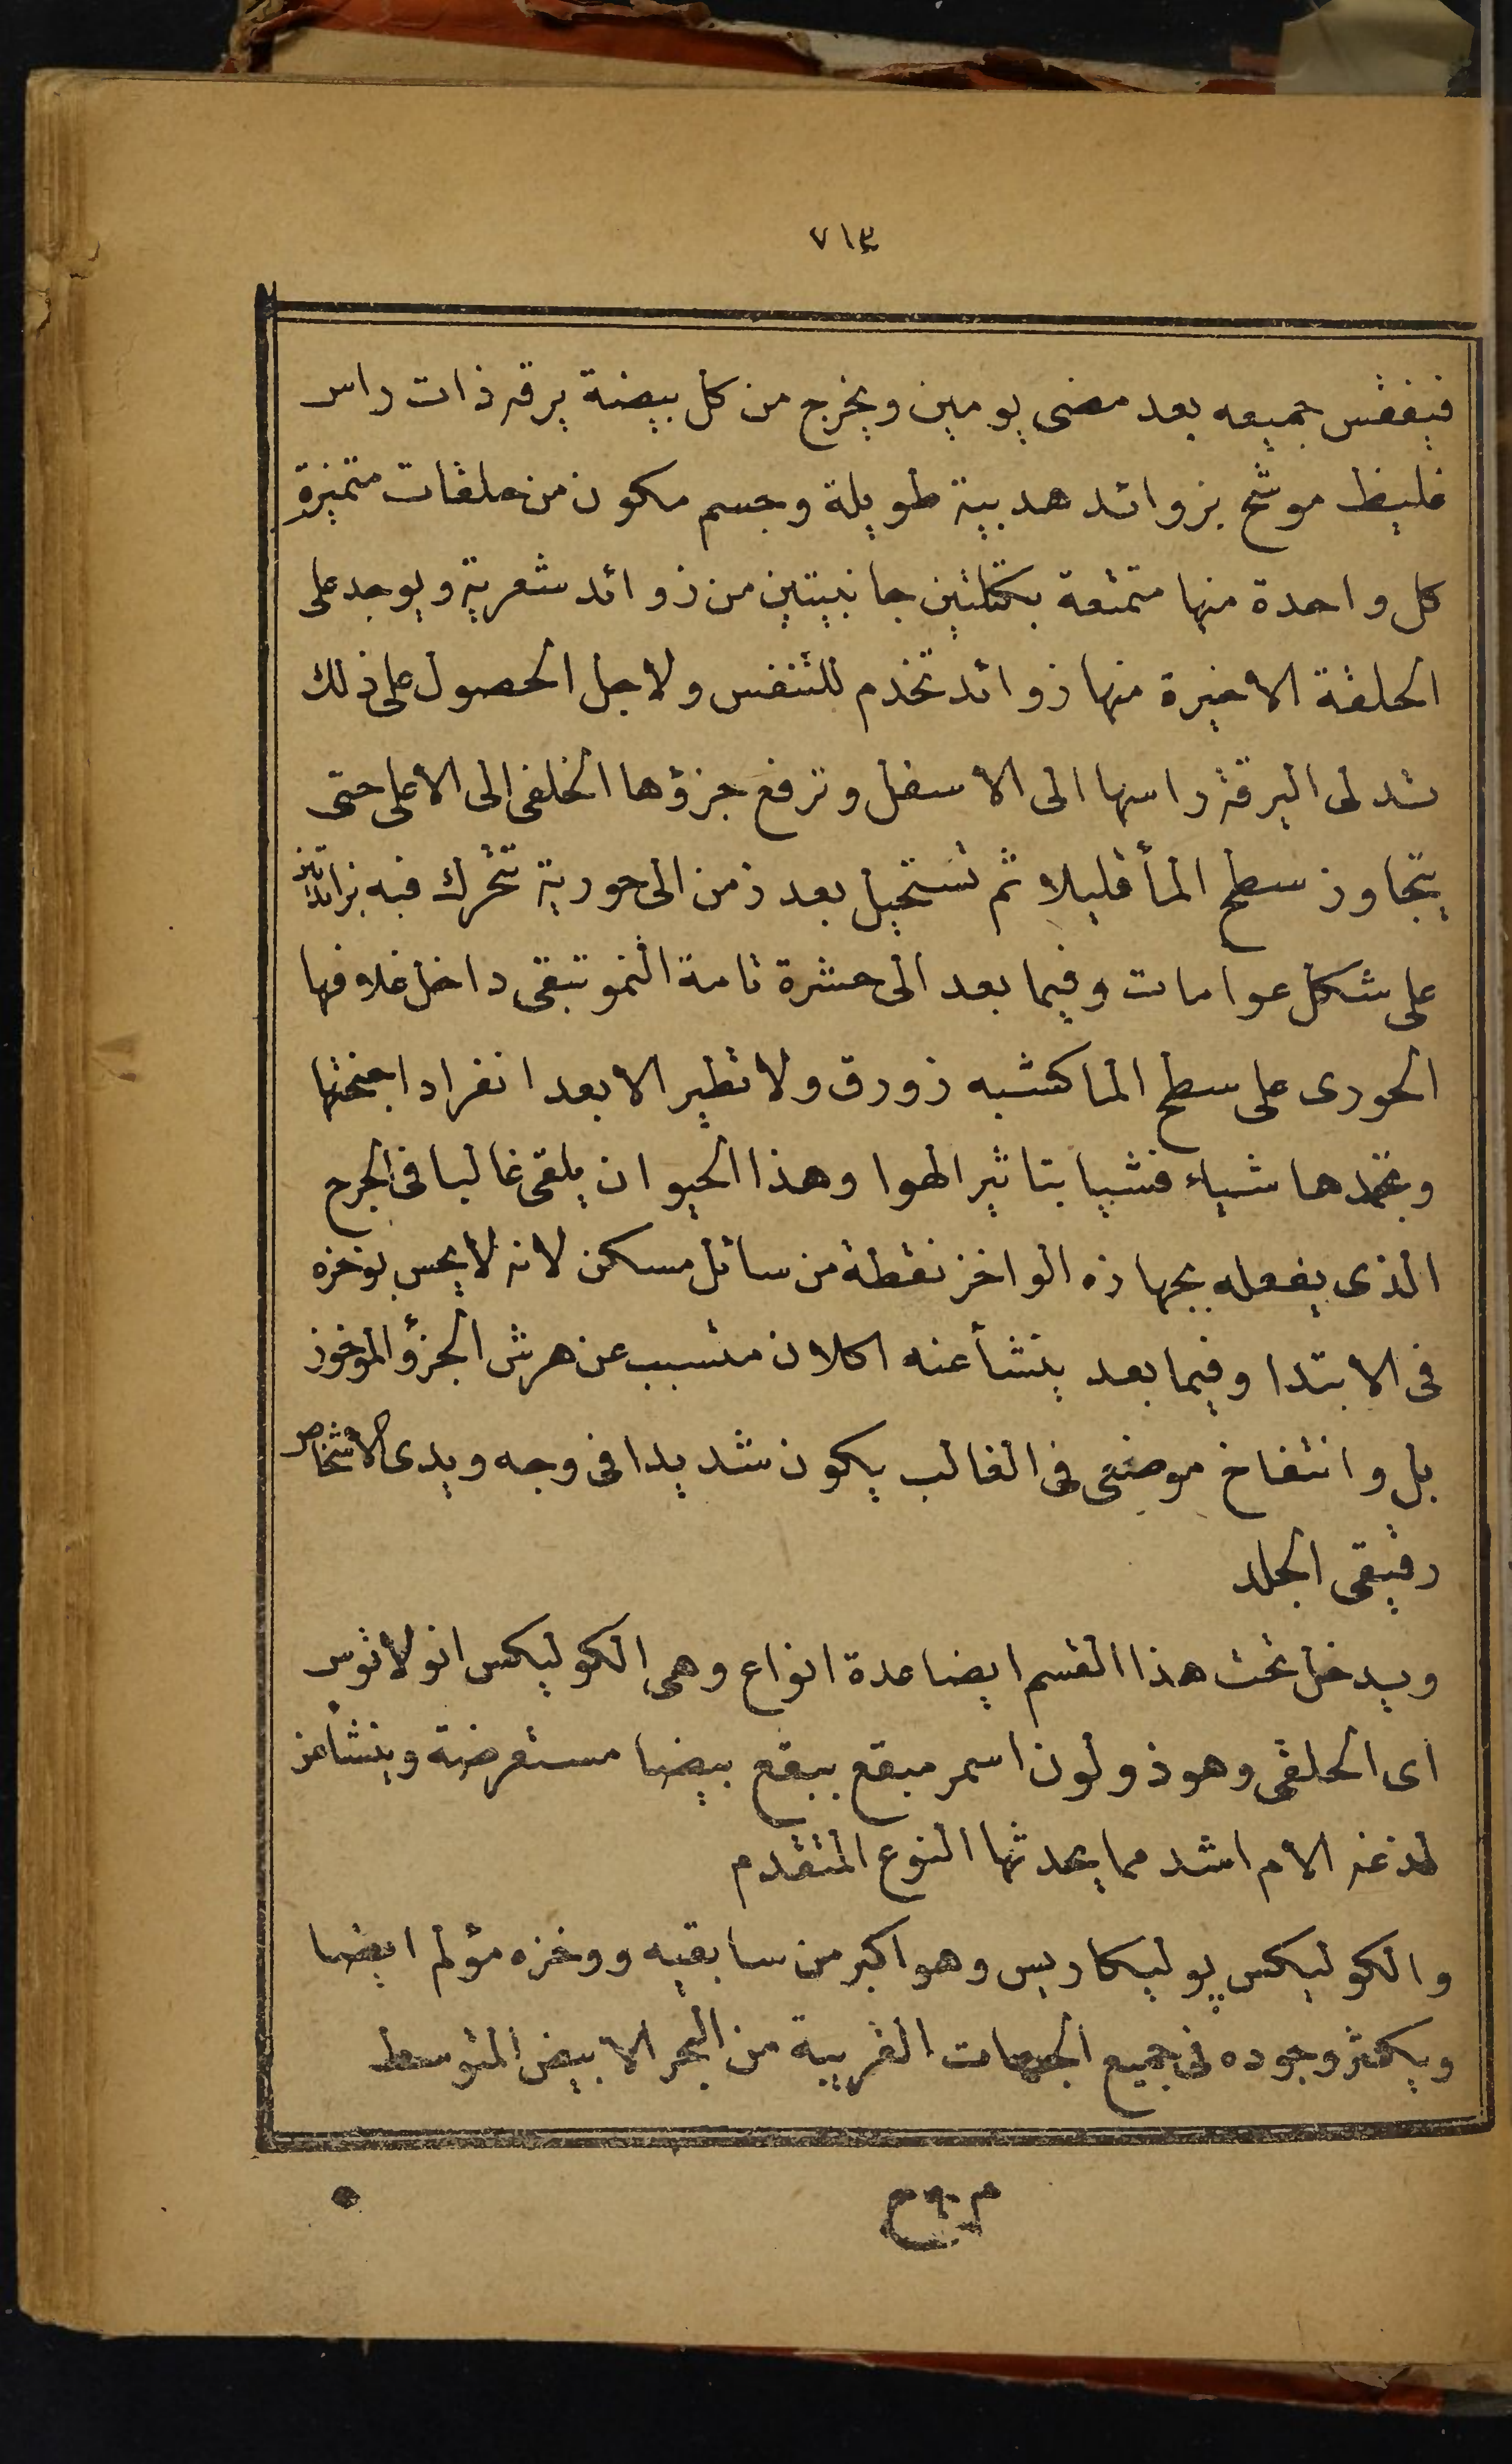 ٧١٣
فيفقس جميعه بعد مضى يومين ويخرج من كل بيضة يرقه ذات راس
غليظ موشح بزوائد هدبية طويلة وجسم مكون من حلقات متميزة
كل واحدة منها متمتعة بكتلتين جانبيتين من زوائد شعرية ويوجد على
الحلقة الاخيرة منها زوائد تخدم للتنفس ولاجل الحصول على ذلك
تدلى اليرقة راسها الى الاسفل وترفع جزؤها الخلفى الى الاعلى حتى
يتجاوز سطح المأ قليلا ثم تستحيل بعد زمن الى حورية تتحرك فيه بزائدتين
على شكل عوامات وفيما بعد الى حشرة تامة النمو تبقى داخل غلافها
الحورى على سطح الما كشبه زورق ولا تطير الا بعد انفراد اجنحتها
وتجمدها شياء فشيا بتاثير الهوا وهذا الحيوان يلقى غالبا فى الجرح
الذى يفعله بجهازه الواخز نقطة من سائل مسكن لانه لا يحس بوخزه
فى الابتدا وفيما بعد ينشأ عنه اكلان متسبب عن هرش الجزؤ الموخوز
بل وانتفاخ موضعى فى الغالب يكون شديدا فى وجه ويدى الاشخاص
رقيقى الجلد
ويدخل تحت هذا القسم ايضا عدة انواع وهى الكوليكس انولاتوس
اى الحلقى وهو ذو لون اسمر مبقع ببقع بيضا مستعرضة وينشأ عن
لذغه الام اشد مما يحدثها النوع المتقدم
والكوليكس پوليكاريس وهو اكبر من سابقيه ووخزه مؤلم ايضا
ويكثر وجوده فى جميع الجهات الغربية من البحر الابيض المتوسط